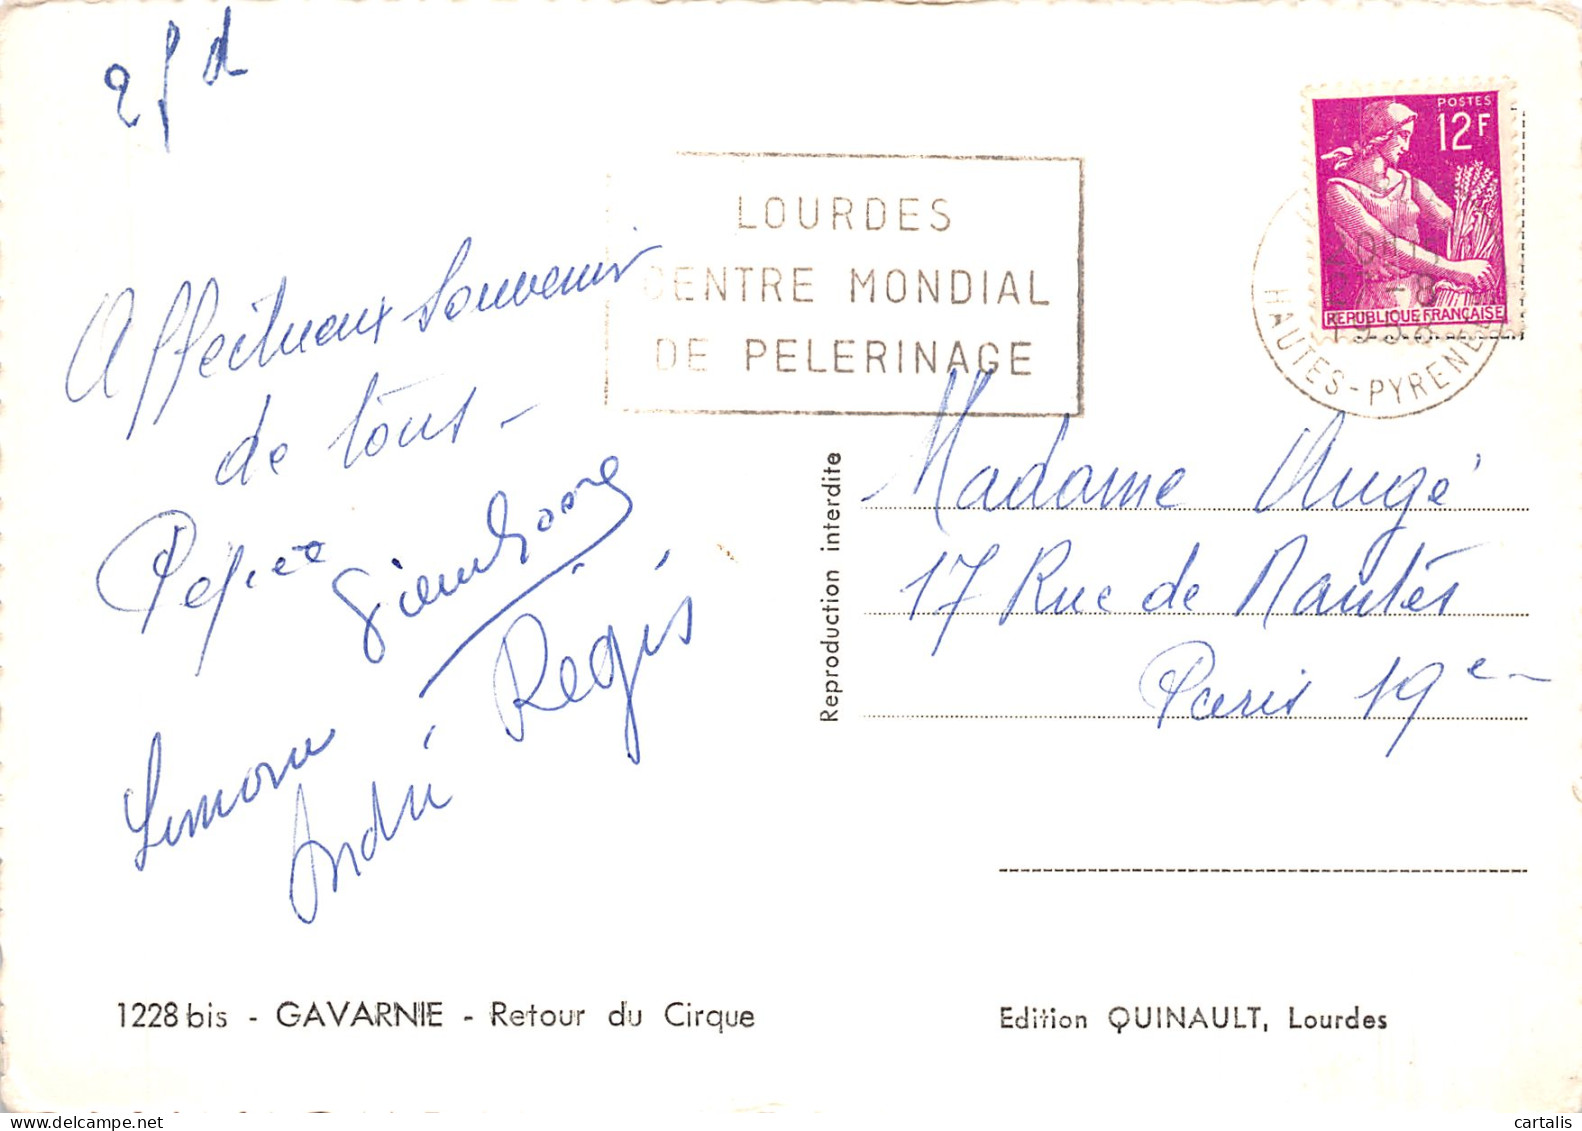 LOURDES
CENTRE MONDIAL
DE PELERINAGE
POSTES
12F
REPUBLIQUE FRANÇAISE
27-8
1958
HAUTES-PYRENEES
Affectueux souvenir
de tous -
Régis
Simone
André
Reproduction interdite
Madame Augé
17 Rue de Nantes
Paris 19e
1228 bis - GAVARNIE - Retour du Cirque
Edition QUINAULT, Lourdes
cartalis